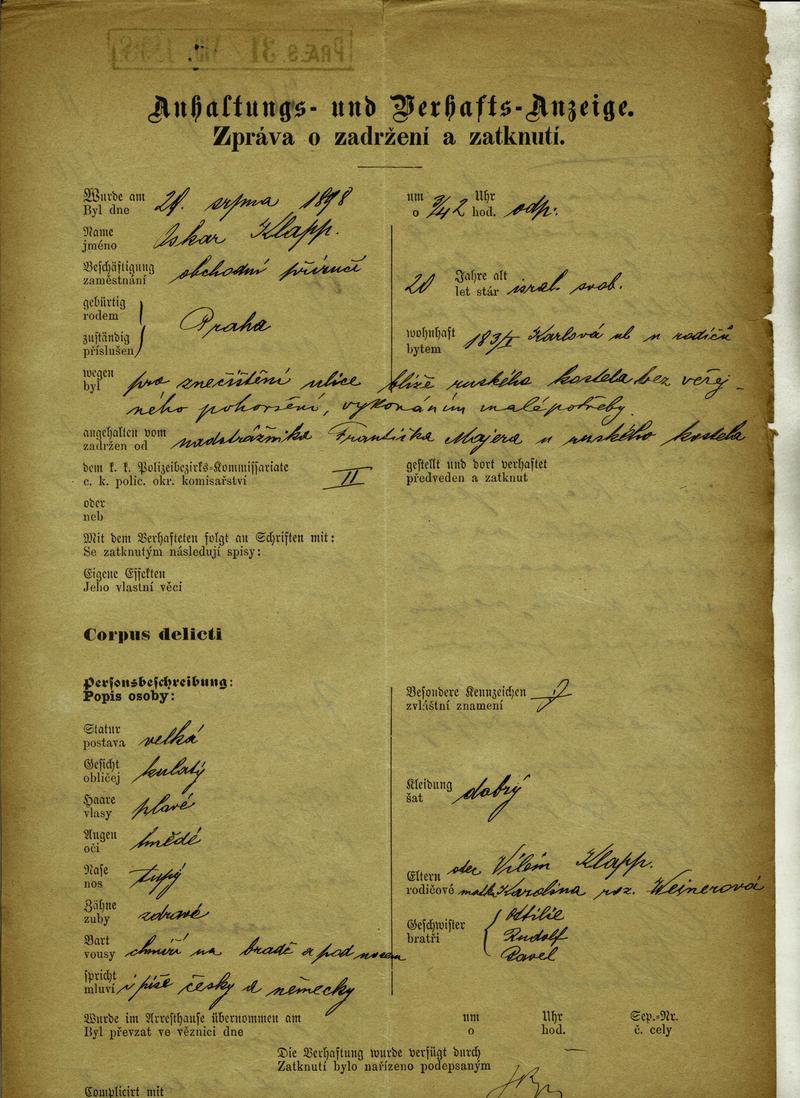 PRAES. 31 VIII. 1898
Anhaltungs- und Verhafts-Anzeige.
Zpráva o zadržení a zatknutí.
Wurde am um Uhr
Byl dne 29. srpna 1898 o 3/4 2 hod. odp.
Name
jméno Oskar Klapp.
Beschäftigung Jahre alt
zaměstnání obchodní příručí 20 let stár israel. svob.
gebürtig
rodem
Praha
zuständig wohnhaft
příslušen bytem 183/I Karlová ul u rodičů
wegen
byl pro znečištění ulice blíže ruského kostela bez veřej-
ného pohoršení, vykonáním malé potřeby.
angehalten vom
zadržen od nadstrážníka Františka Majera u ruského kostela
dem k. k. Polizeibezirks-Kommissariate gestellt und dort verhaftet
c. k. polic. okr. komisařství II předveden a zatknut
oder
neb
Mit dem Verhafteten folgt an Schriften mit:
Se zatknutým následují spisy:
Eigene Effekten
Jeho vlastní věci
Corpus delicti
Personsbeschreibung:
Popis osoby:
Besondere Kennzeichen
zvláštní znamení
Statur
postava velká
Gesicht
obličej kulatý
Kleidung
šat dobrý
Haare
vlasy plavé
Augen
oči hnědé
Nase
nos tupý
Eltern otec Vilém Klapp.
rodičové matk. Karolina roz. Weinerová
Zähne
zuby zdravé
Geschwister Ottilie
bratří Rudolf
Pavel
Bart
vousy chmýří na bradě a pod nosem
spricht
mluví i píše česky a německy
Wurde im Arresthause übernommen am um Uhr Sep.-Nr.
Byl převzat ve věznici dne o hod. č. cely
Die Verhaftung wurde verfügt durch
Zatknutí bylo nařízeno podepsaným
Complicirt mit